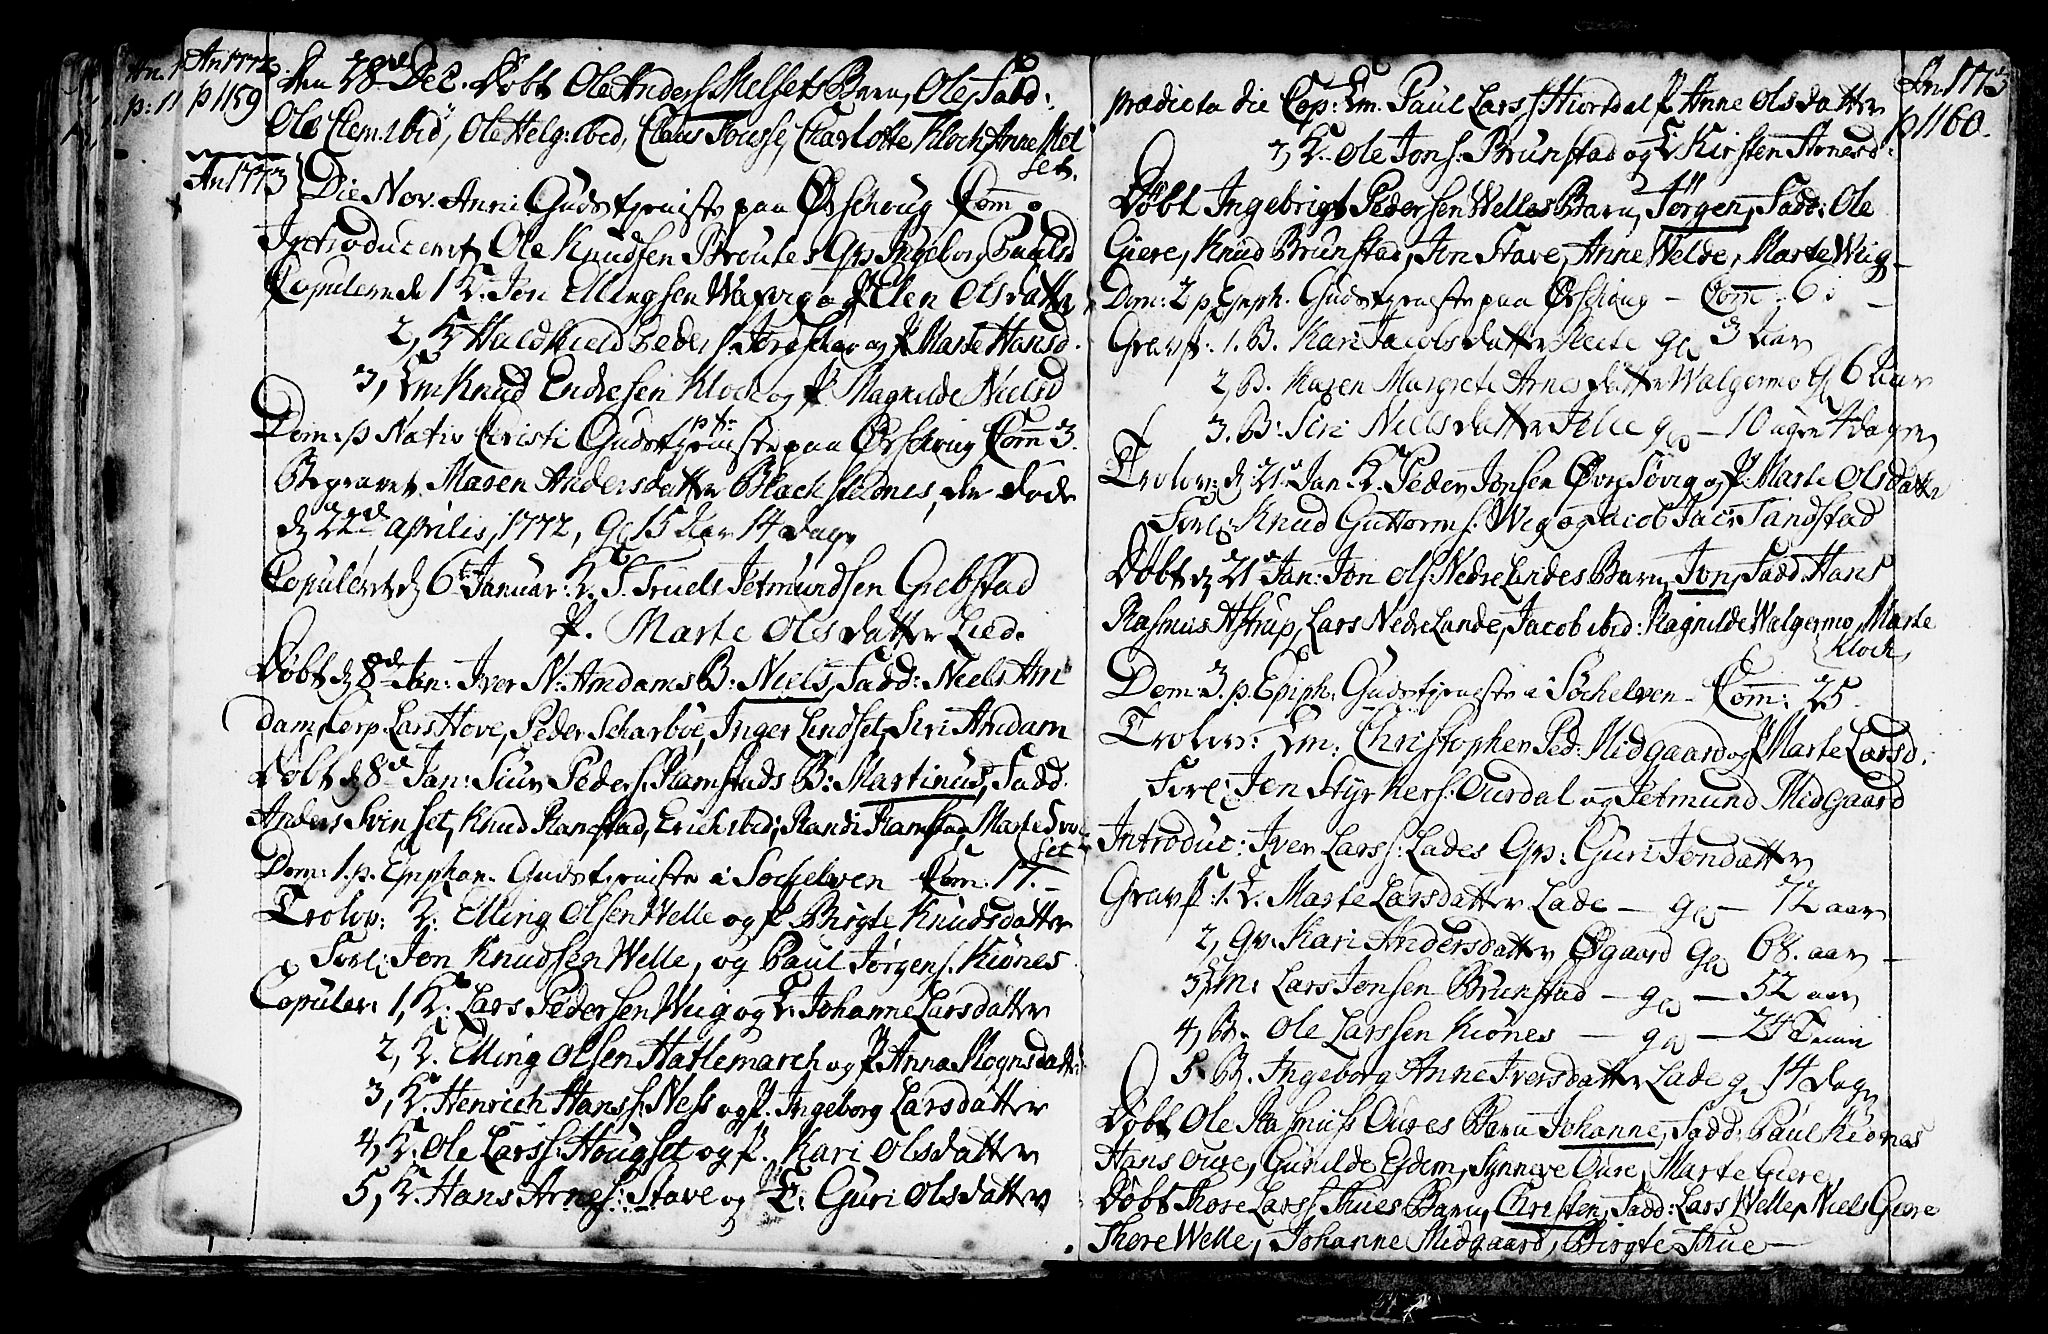 An 1772
p 1159
den 28de Dec. Døbt Ole Anders: Melsets Barn, Ole, Fadd:
Ole Clem: ibid, Ole Helg: ibid, Claus Charlotte Kloch, Anne Mel
set.
An 1773
Die Nov. Anni Gudstjeniste paa Ørschoug Com 0
Introduceret Ole Knudsen Breutes Qv. Ingeborg Paulsd
Copulerede 1 K. Jon Ellingsen og P. Elen Olsdatter
2, K. Peders. og P. Marte Hansd.
3, Em Knud Endresen Kloch og P. Magnilde Nielsd
Dom: p Nativ Christi Gudstjeniste paa Ørschoug Com 3.
Begravet Maren Andersdatter der døde
d 22de Aprilis, 1772, gl 15 Aar 14 dage
Copuleret d 6te Januar: K. S. Truels Jetmundsen Giebstad
P. Marte Olsdatter Lied.
Døbt d 8de Jan: Iver N: Amdams B: Niels, Fadd: Niels Am
dam, Corp. Lars Hove, Peder Scharbøe, Inger Lindset, Siri Amdam
Døbt d 8de Jan: Siur Peders: Ramstads B: Martinus, Fadd.
Anders Svinset, Knud Ramstad, Erich ibid; Randi Ramstad, Marte
set
Dom: 1. p. Epiphan. Gudstjeniste i Søchelven Com. 17. –
Trolov: K. Elling Olsen Welle og P. Birgte Knudsdatter
Forl: Jon Knudsen Welle, og Paul Jørgens. Kiønes
Copuler: 1, K. Lars Pedersen Wiig og E. Johanne Larsdatter
2, K. Elling Olsen Hatlemarch og P. Anna Mognsdatt:
3, K. Henrich Hans: Ness og P. Ingeborg Larsdatter
4, K. Ole Larss: Hougset og P. Kari Olsdatter
5, K. Hans Arnes: Stave og E: Guri Olsdatter
An: 1773
p 1160.
prædicta die Cop: Em. Paul Larss: Hiortdal P. Anne Olsdatter
7, K. Ole Jons: Brunstad og E Kirsten Arnesd:
Døbt Ingebrigt Pedersen Welles Barn, Jørgen, Fadd: Ole
Giere, Knud Brunstad, Jon Stave, Anne Welde, Marte Wiig –
Dom: 2 p. Epiph. Gudstjeniste paa Ørschoug – Com: 6: –
Gravf: 1. B. Kari Jacobsdatter gl 3 Aar
2, B. Karen Margrete Arnesdatter Walgermo gl 6 Aar
3. B: Siri Nielsdatter gl – 10 uger 4 dage
Trolov: d 21de Jan. K. Peder Jonsen Øvre Søvig og P. Marte Olsdatter
Forl: Knud Guttorms: Wiig og Jacob Jac: Tandstad
Døbt d 21de Jan: Jon Ols: Nedre Landes Barn, Jon, Fadd. Hans
Rasmus Astrup, Lars Nedre Lande, Jacob ibid: Magnilde Walgermo, Marte
Kloch
Dom: 3. p. Epiph: Gudstjeniste i Søchelven – Com: 25.
Trolov: Em: Christopher Ped: Midgaard og P. Marte Larsd.
Forl: Jon Styrkers: Ourdal og Jetmund Midgaard
Introduc: Iver Larss: Lades Qv: Guri Jondatter
Gravf: 1. E. Marte Larsdatter Lade – gl – 72 aar
2, Qv. Kari Andersdatter Øgaard gl 68. aar –
3, Em: Lars Jonsen Brunstad – gl – 52 aar
4, B. Ole Larssen Kiønes – gl – 24
5. B. Ingeborg Anne Iversdatter Lade gl 14 dage
Døbt Ole Rasmuss: Oures Barn Johanne, Fadd: Paul Kiønes
Hans Oure, Gunilde Synneve Oure, Marte Giere
Døbt Thore Larss: Thues Barn, Christen, Fadd: Lars Welle, Niels Giere
Thore Welle, Johanne Midgaard, Birgte Thue –